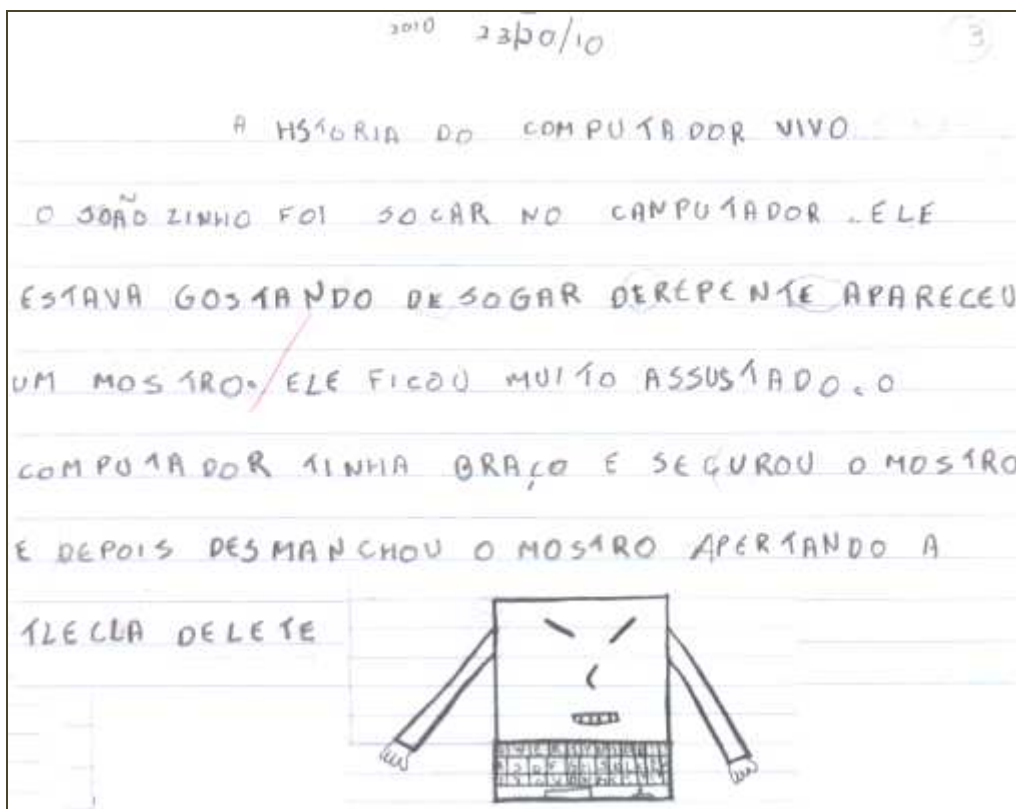 2010 23/20/10
3
A HSTORIA DO COMPUTADOR VIVO
O JOÃO ZINHO FOI JOCAR NO CAMPUTADOR . ELE
ESTAVA GOSTANDO DE JOGAR DEREPENTE APARECEU
UM MOSTRO. ELE FICOU MUITO ASSUSTADO. O
COMPUTADOR TINHA BRAÇO E SEGUROU O MOSTRO
E DEPOIS DESMANCHOU O MOSTRO APERTANDO A
TLECLA DELETE